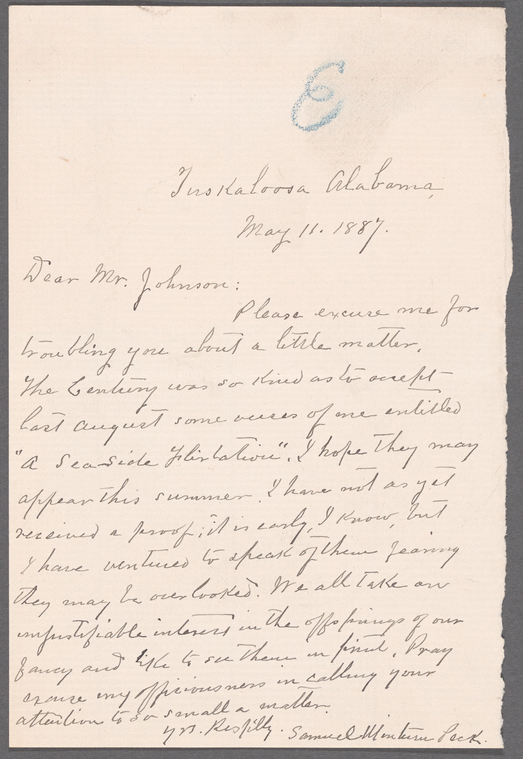 E
Tuskaloosa Alabama,
May 11. 1887.
Dear Mr. Johnson:
Please excuse me for
troubling you about a little matter.
The Century was so kind as to accept
last august some verses of me entitled
"A Sea-side Flirtation". I hope they may
appear this summer. I have not as yet
received a proof; it is early, I know, but
I have ventured to speak of them fearing
they may be overlooked. We all take an
unjustifiable interest in the offsprings of our
fancy and like to see them in print. Pray
excuse my officiousness in calling your
attention to so small a matter.
yrs. Respflly. Samuel Minturn Peck.